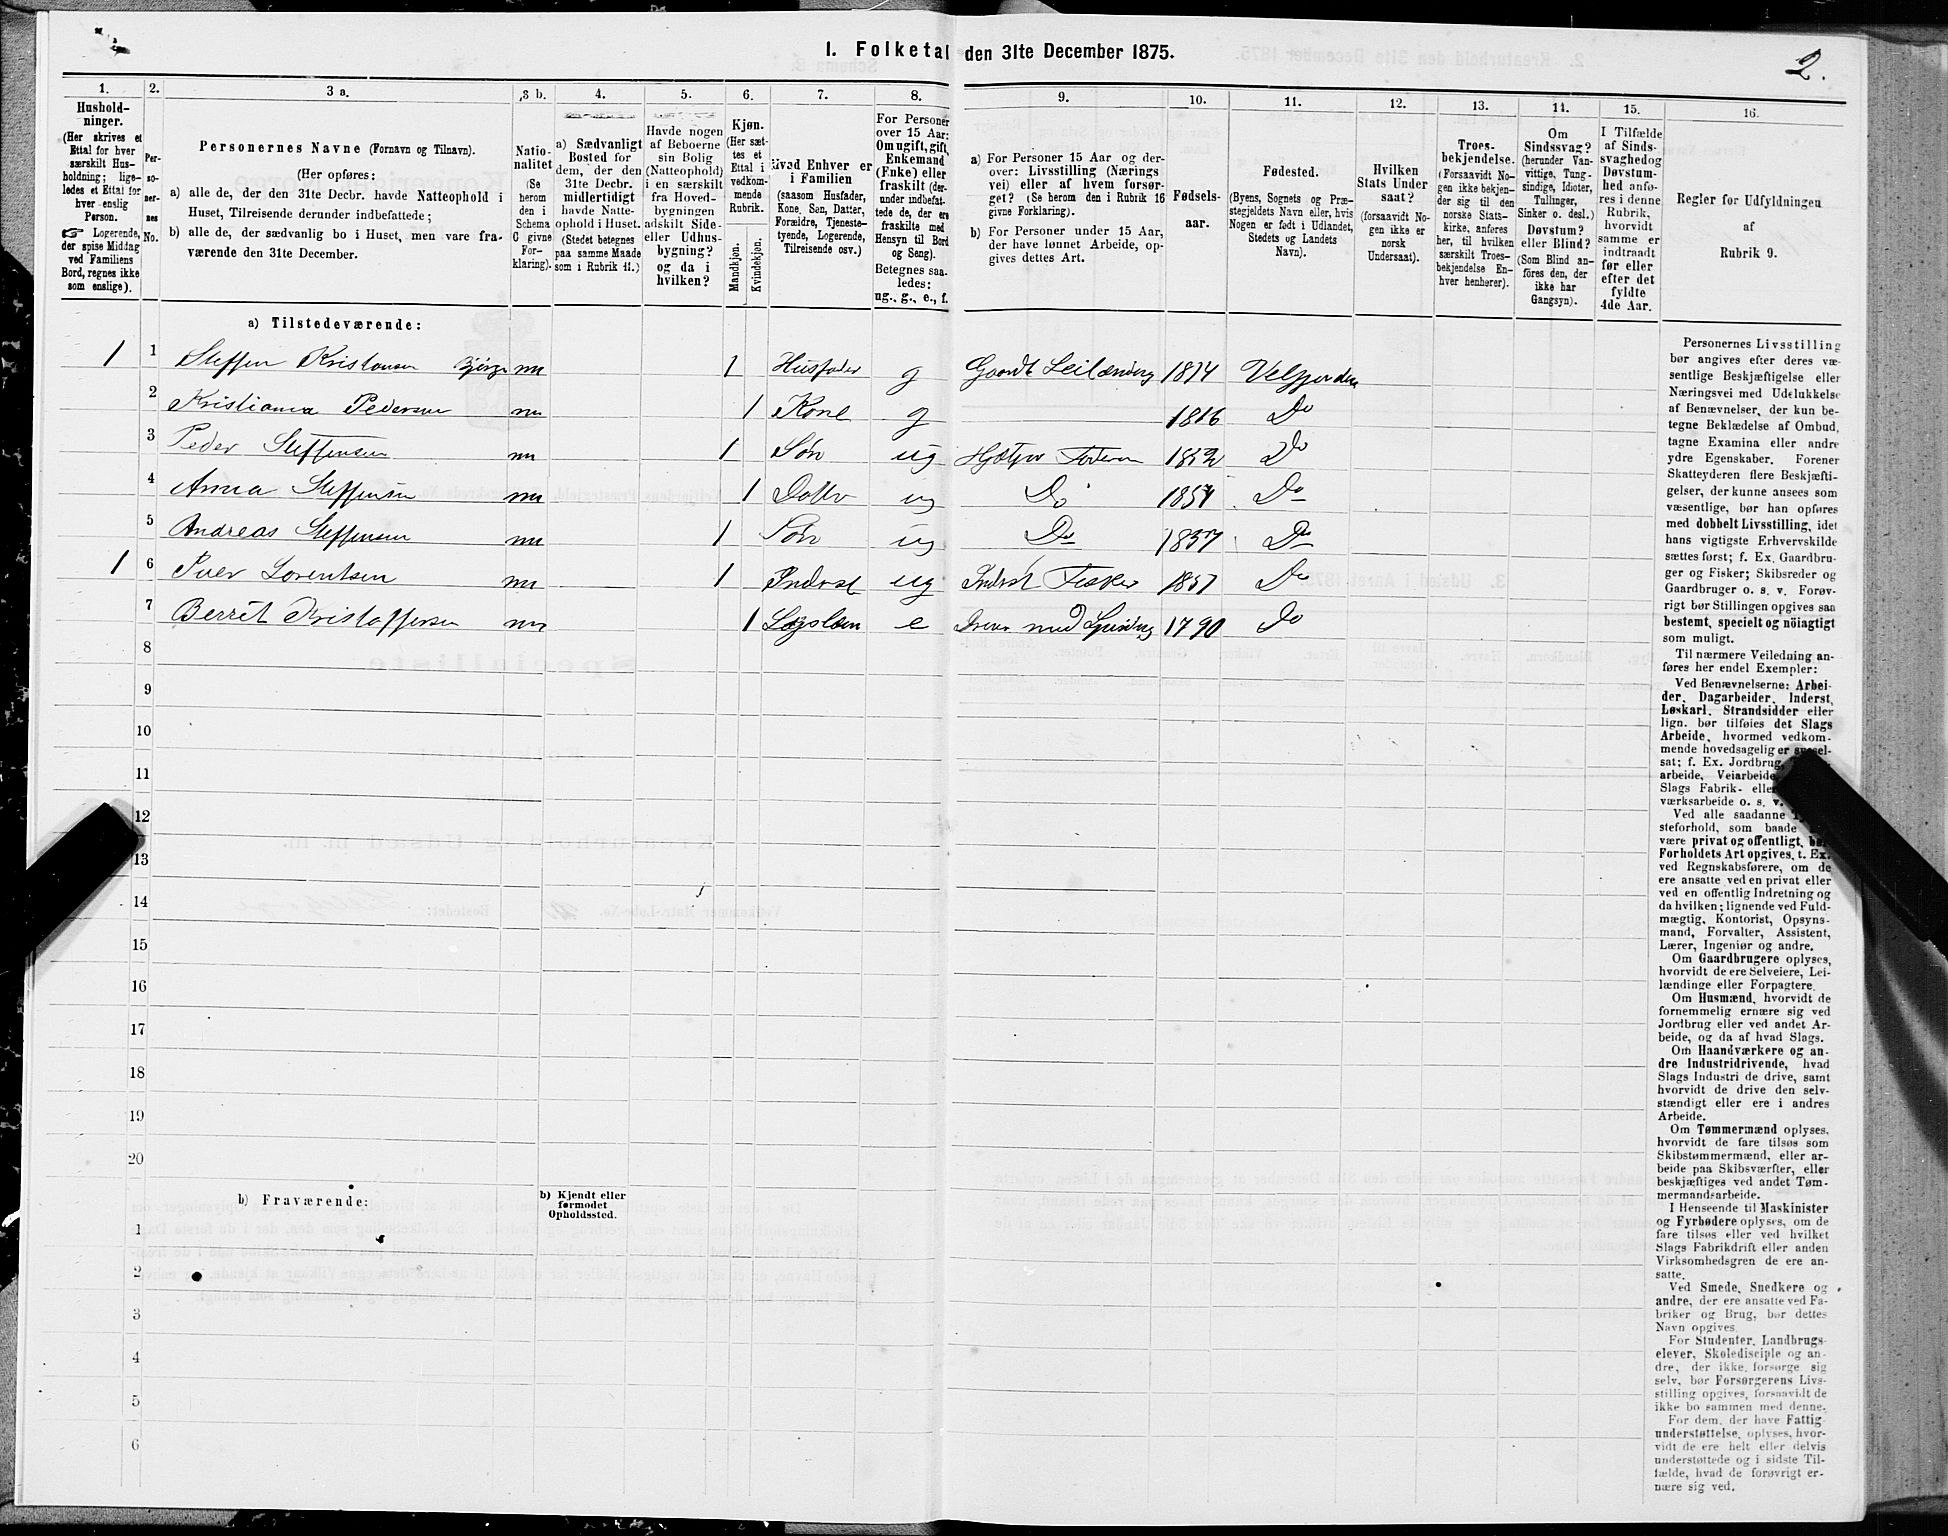 I. Folketal den 31te December 1875.
2.
1.
Hushold-
ninger.
(Her skrives et
Ettal for hver
særskilt Hus-
holdning; lige-
ledes et Ettal for
hver enslig
Person.
☞ Logerende,
der spise Middag
ved Familiens
Bord, regnes ikke
som enslige).
2.
Per-
so-
ner-
nes
No.
3 a.
Personernes Navne (Fornavn og Tilnavn).
(Her opføres:
a) alle de, der den 31te Decbr. havde Natteophold i
Huset, Tilreisende derunder indbefattede;
b) alle de, der sædvanlig bo i Huset, men vare fra-
værende den 31te December.
3 b.
Natio-
nalitet
(Se
herom
den i
Schema
G givne
For-
klaring).
4.
a) Sædvanligt
Bosted for
dem, der den
31te Decbr.
midlertidigt
havde Natte-
ophold i Huset.
(Stedet betegnes
paa samme Maade
som i Rubrik 11.)
5.
Havde nogen
af Beboerne
sin Bolig
(Natteophold)
i en særskilt
fra Hoved-
bygningen
adskilt Side-
eller Udhus-
bygning?
og da i
hvilken?
6.
Kjøn.
(Her sæt-
tes et
Ettal i
vedkom-
mende
Rubrik.
Mandkjøn.
Kvindekjøn.
7.
Hvad Enhver er
i Familien
(saasom Husfader,
Kone, Søn, Datter,
Forældre, Tjeneste-
tyende, Logerende,
Tilreisende osv.)
8.
For Personer
over 15 Aar:
Om ugift, gift,
Enkemand
(Enke) eller
fraskilt (der-
under indbefat-
tede de, der ere
fraskilte med
Hensyn til Bord
og Seng).
Betegnes saa-
ledes:
ug., g., e., f.
9.
a) For Personer 15 Aar og der-
over: Livsstilling (Nærings
vei) eller af hvem forsør-
get? (Se herom den i Rubrik 16
givne Forklaring).
b) For Personer under 15 Aar,
der have lønnet Arbeide, op-
gives dettes Art.
10.
Fødsels-
aar.
11.
Fødested.
(Byens, Sognets og Præ-
stegjeldets Navn eller, hvis
Nogen er født i Udlandet,
Stedets og Landets
Navn).
12.
Hvilken
Stats Under
saat?
(forsaavidt No-
gen ikke er
norsk
Undersaat).
13.
Troes-
bekjendelse.
(Forsaavidt No-
gen ikke bekjen-
der sig til den
norske Stats-
kirke, anføres
her, til hvilken
særskilt Troes-
bekjendelse En-
hver henhører).
14.
Om
Sindssvag?
(herunder Van-
vittige, Tung-
sindige, Idioter,
Tullinger,
Sinker o. desl.)
Døvstum?
eller Blind?
(Som Blind an-
føres den, der
ikke har
Gangsyn).
15.
I Tilfælde
af Sinds-
svaghed og
Døvstum-
hed anfø-
res i denne
Rubrik,
hvorvidt
samme er
indtraadt
før eller
efter det
fyldte
4de Aar.
16.
Regler for Udfyldningen
af
Rubrik 9.
a) Tilstedeværende:
1 1 Steffen Kristansen nn 1 Husfader g Gaardb Leilænding 1814 Velfjorden
2 Kristianna Pedersen nn 1 Kone g 1816 Do
3 Peder Steffensen nn 1 Søn ug 1852 Do
4 Anna Steffensen nn 1 Datter ug Do 1854 Do
5 Andreas Steffensen nn 1 Søn ug Do 1857 Do
1 6 Lorentsen nn 1 Inderst ug Inderst Fisker 1857 Do
7 Berret Kristoffersen nn 1 e med Spinding 1790 Do
8
9
10
11
12
13
14
15
16
17
18
19
20
b) Fraværende:
b) Kjendt eller
formodet
Opholdssted.
1
2
3
4
5
6
Personernes Livsstilling
bør angives efter deres væ-
sentlige Beskjæftigelse eller
Næringsvei med Udelukkelse
af Benævnelser, der kun be-
tegne Beklædelse af Ombud,
tagne Examina eller andre
ydre Egenskaber. Forener
Skatteyderen flere Beskjæfti-
gelser, der kunne ansees som
væsentlige, bør han opføres
med dobbelt Livsstilling, idet
hans vigtigste Erhvervskilde
sættes først; f. Ex. Gaardbru-
ger og Fisker; Skibsreder og
Gaardbruger o. s. v. Forøv-
rigt bør Stillingen opgives saa
bestemt, specielt og nöiagtigt
som muligt.
Til nærmere Veiledning an-
føres her endel Exempler:
Ved Benævnelserne: Arbei-
der, Dagarbeider, Inderst,
Løskarl, Strandsidder eller
lign. bør tilføies det Slags
Arbeide, hvormed vedkom-
mende hovedsagelig er syssel-
sat; f. Ex. Jordbrug,
arbeide, Veiarbeide,
Slags Fabrik- eller
værksarbeide o. s. v.
Ved alle saadanne
steforhold, som baade
være privat og offentligt, bør
Forholdets Art opgives, t. Ex.
ved Regnskabsførere, om de
ere ansatte ved en privat eller
ved en offentlig Indretning og
da hvilken; lignende ved Fuld-
mægtig, Kontorist, Opsyns-
mand, Forvalter, Assistent,
Lærer, Ingeniør og andre.
Om Gaardbrugere oplyses,
hvorvidt de ere Selveiere, Lei-
lændinge eller Forpagtere.
Om Husmænd, hvorvidt de
fornemmelig ernære sig ved
Jordbrug eller ved andet Ar-
beide, og da af hvad Slags.
Om Haandværkere og an-
dre Industridrivende, hvad
Slags Industri de drive, samt
hvorvidt de drive den selv-
stændigt eller ere i andres
Arbeide.
Om Tømmermænd oplyses,
hvorvidt de fare tilsøs som
Skibstømmermænd, eller ar-
beide paa Skibsværfter, eller
beskjæftiges ved andet Tøm-
mermandsarbeide.
I Henseende til Maskinister
og Fyrbødere oplyses, om de
fare tilsøs eller ved hvilket
Slags Fabrikdrift eller anden
Virksomhedsgren de ere an-
satte.
Ved Smede, Snedkere og
andre, der ere ansatte ved Fa-
briker og Brug, bør dettes
Navn opgives.
For Studenter, Landbrugs-
elever, Skoledisciple og an-
dre, der ikke forsørge sig
selv, bør Forsørgerens Livs-
stilling opgives, forsaavidt de
ikke bo sammen med denne.
For dem, der have Fattig-
understøttelse, oplyses, hvor-
vidt de ere helt eller delvis
understøttede og i sidste Til-
fælde, hvad de forøvrigt er-
nære sig ved.